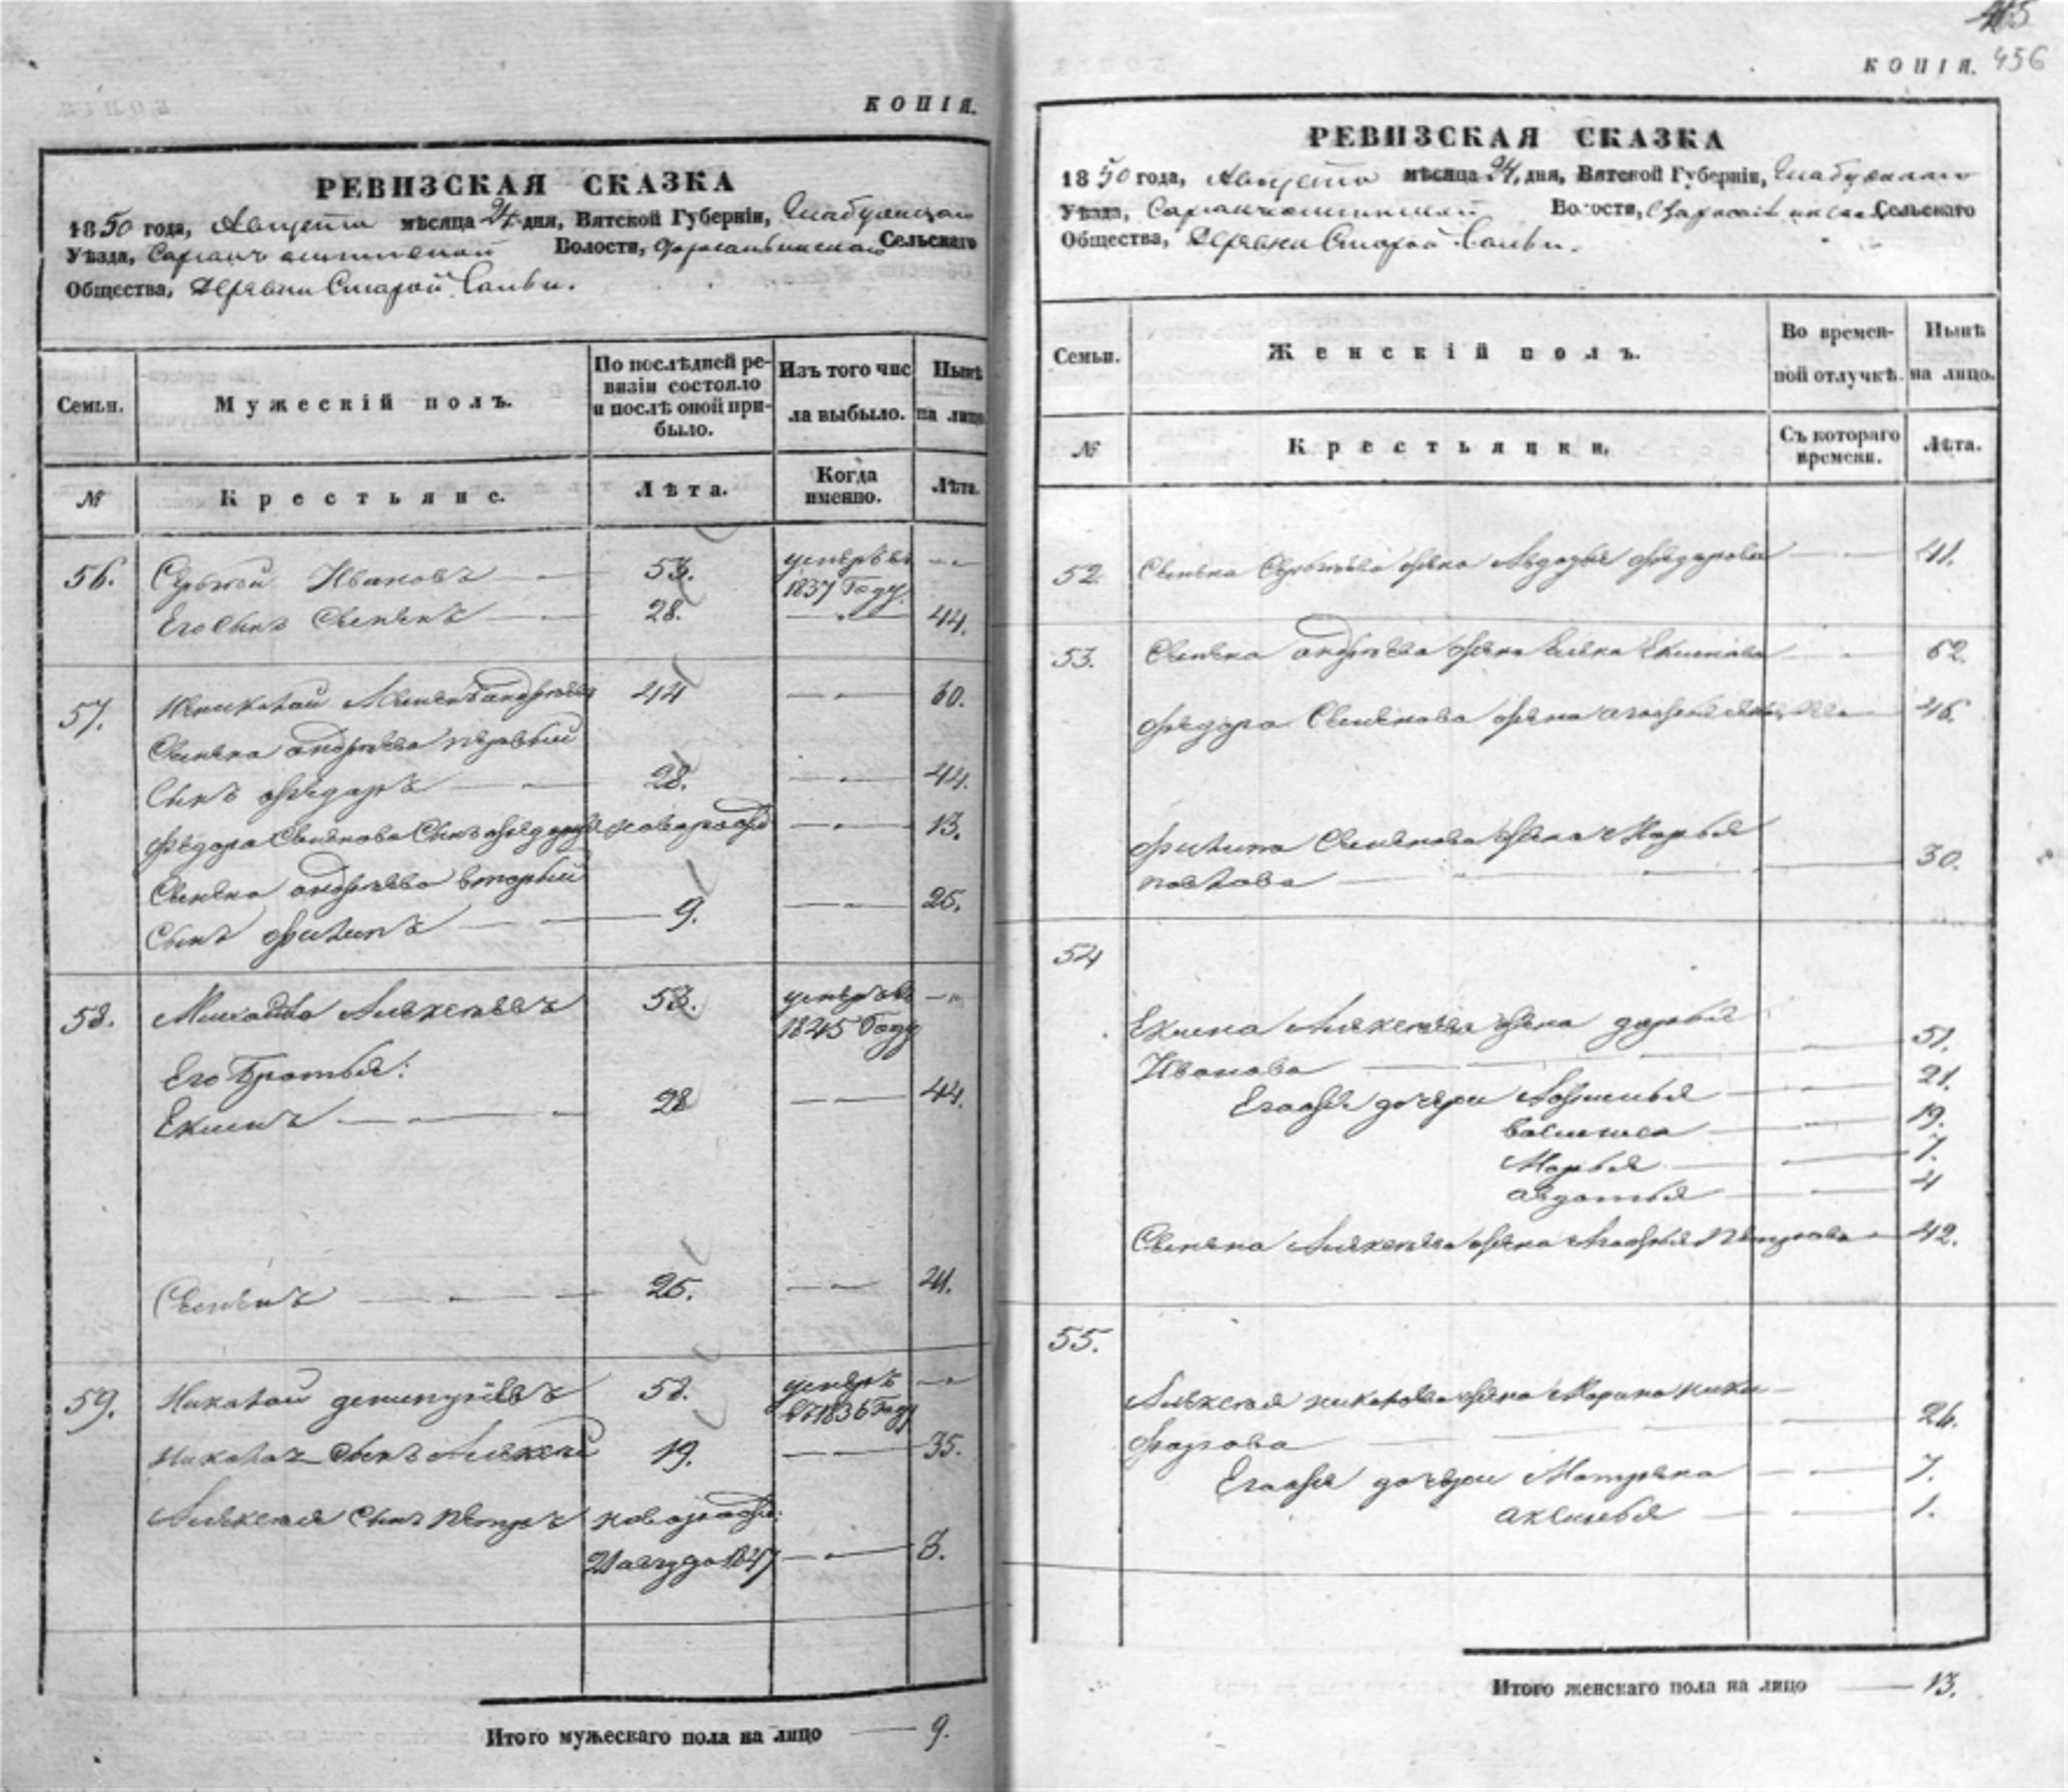 КОПІЯ.
РЕВИЗСКАЯ СКАЗКА
1850 года, Августа мѣсяца 24 дня, Вятской Губерніи, Елабужскаго
Уѣзда, Волости, Сельскаго
Общества, Деревни Старой Сальи.
Семьи. Мужескій полъ. По послѣдней ре- Изъ того чис Нынѣ
визіи состояло
и послѣ оной при- ла выбыло. на лицо
было.
№ Крестьяне. Лѣта. Когда Лѣта.
именно.
56. Сергѣй Ивановъ 53. умеръ въ
1837 Году.
Его Сынъ Семенъ 28. 44.
57. 44 60.
Семена Андрѣева первый
Сынъ Федоръ 28. 44.
Федора Семенова Сынъ новорожд 13.
Семена Андрѣева вторый
Сынъ Филипъ 9. 25.
58. Михайло Алексѣевъ 53. умеръ въ
1845 Году
Его Братья:
Екимъ 28 44.
Семенъ 25. 41.
59. Николай 58. умеръ
въ 1836 Году
Николая Сынъ Алексѣй 19. 35.
Алексея Сынъ Петръ новорожд:
3.
Итого мужескаго пола на лицо 9.
456
КОПІЯ.
РЕВИЗСКАЯ СКАЗКА
1850 года, Августа мѣсяца 24, дня, Вятской Губерніи, Елабужскаго
Уѣзда, Волости, Сельскаго
Общества, Деревни Старой Сальи.
Семьи. Женскій полъ. Во времен- Нынѣ
ной отлучкѣ. на лицо.
№ Крестьянки. Съ котораго Лѣта.
времени.
52. Семена Сергѣева жена Авдотья Федорова 41.
53. Семена Андрѣева жена Елена Екимова 62.
Федора Семенова жена 46.
Филипа Семенова жена Марья
Павлова 30.
54
Екима Алексѣева жена Дарья
Иванова 51.
Егожъ дочери 21.
Василиса 19.
Марья 7.
Авдотья 4
Семена Алексѣева жена Агафья Петрова 42.
55.
Алексея Николаева жена Марина Ники-
форова 26.
Егожъ дочери Матрена 7.
Аксинья 1.
Итого женскаго пола на лицо 13.